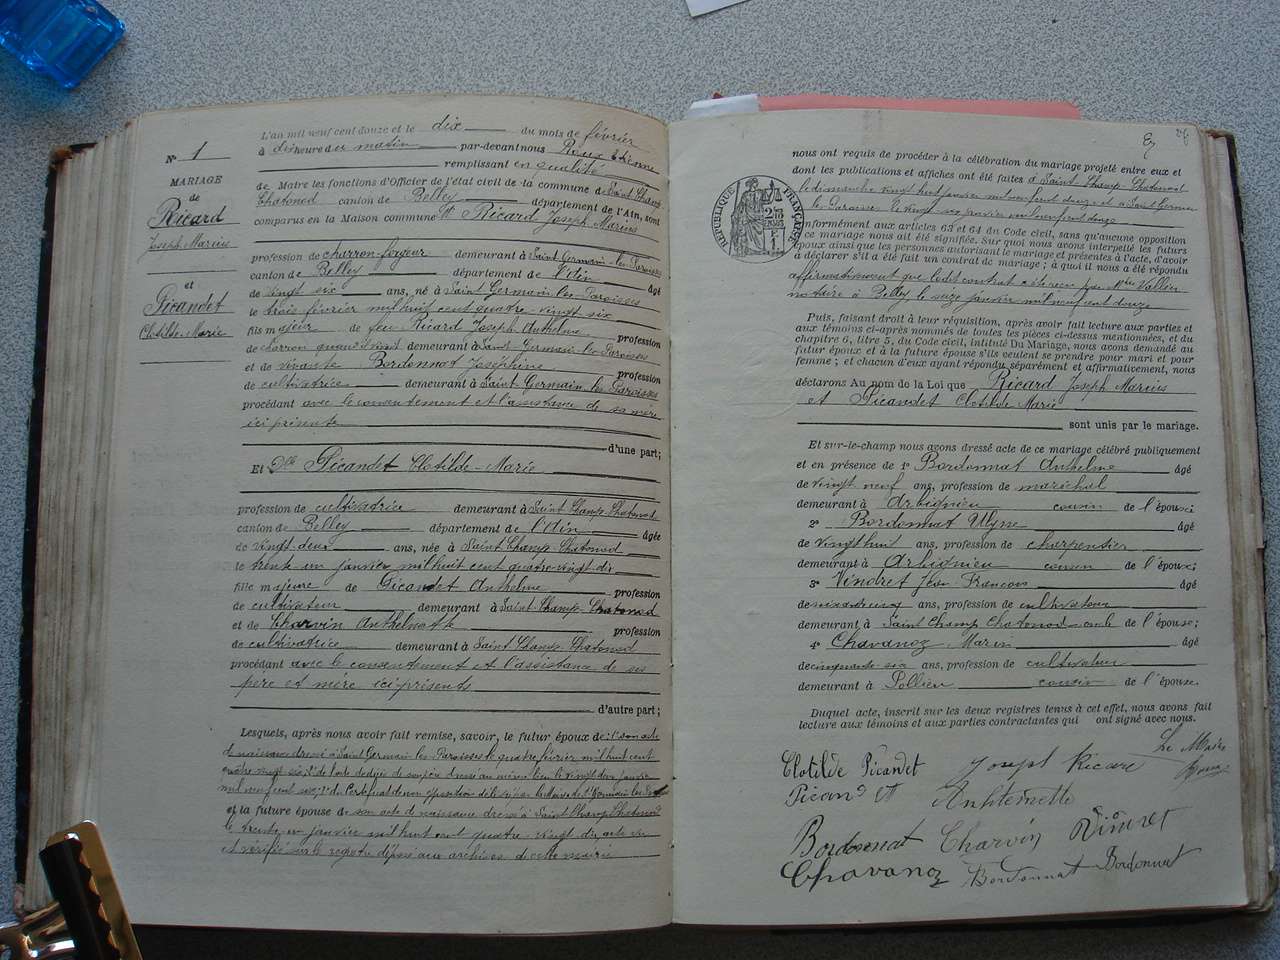 N° 1
MARIAGE
de
Ricard
Joseph Marius
et
Picandet
Clotilde Marie
L'an mil neuf cent douze et le dix du mois de février
à dix heure du matin par-devant nous Roux Etienne
remplissant en qualité
de Maire les fonctions d'Officier de l'état civil de la commune de Saint Champ
Chatonod canton de Belley département de l'Ain, sont
comparus en la Maison commune Mr Ricard Joseph Marius
profession de charron forgeur demeurant à Saint Germain-les-Paroisses
canton de Belley département de l'Ain âgé
de vingt six ans, né à Saint Germain-les-Paroisses
le trois février mil huit cent quatre-vingt six
fils majeur de feu Ricard Joseph Anthelme profession
de charron quand vivait demeurant à Saint Germain-les-Paroisses
et de vivante Bordonnat Joséphine profession
de cultivatrice demeurant à Saint Germain-les-Paroisses
procédant avec le consentement et l'assistance de sa mère
ici présente
d'une part;
Et Dlle Picandet Clotilde-Marie
profession de cultivatrice demeurant à Saint Champ-Chatonod
canton de Belley département de l'Ain âgée
de vingt-deux ans, née à Saint Champ-Chatonod
le trente un janvier mil huit cent quatre-vingt-dix
fille majeure de Picandet Anthelme profession
de cultivateur demeurant à Saint-Champ-Chatonod
et de Charvin Anthelmette profession
de cultivatrice demeurant à Saint Champ-Chatonod
procédant avec le consentement et l'assistance de ses
père et mère ici présents
d'autre part;
Lesquels, après nous avoir fait remise, savoir, le futur époux de : 1° son acte
de naissance dressé à Saint Germain-les-Paroisses le quatre février mil huit cent
quatre vingt six; 2° de l'acte de décès de son père dressé au même lieu le vingt deux janvier
mil neuf cent six; 3° du Certificat de non opposition délivré par le Maire de St Germain les
et la future épouse de son acte de naissance dressé à Saint Champ Chatonod
le trente un janvier mil huit cent quatre-vingt dix, acte
et vérifié sur le registre déposé aux archives de cette mairie
8
26
nous ont requis de procéder à la célébration du mariage projeté entre eux et
dont les publications et affiches ont été faites à Saint Champ-Chatonod
le dimanche vingt huit janvier mil neuf cent douze et à Saint Germain
les Paroisses le vingt janvier mil neuf cent douze
RÉPUBLIQUE FRANÇAISE
conformément aux articles 63 et 64 du Code civil, sans qu'aucune opposition
à ce mariage nous ait été signifiée. Sur quoi nous avons interpellé les futurs
époux ainsi que les personnes autorisant le mariage et présentes à l'acte, d'avoir
à déclarer s'il a été fait un contrat de mariage; à quoi il nous a été répondu
affirmativement que ledit contrat a été reçu par Me Vallin
notaire à Belley le seize janvier mil neuf cent douze
Puis, faisant droit à leur réquisition, après avoir fait lecture aux parties et
aux témoins ci-après nommés de toutes les pièces ci-dessus mentionnées, et du
chapitre 6, titre 5, du Code civil, intitulé Du Mariage, nous avons demandé au
futur époux et à la future épouse s'ils veulent se prendre pour mari et pour
femme; et chacun d'eux ayant répondu séparément et affirmativement, nous
déclarons Au nom de la Loi que Ricard Joseph Marius
et Picandet Clotilde Marie
sont unis par le mariage.
Et sur-le-champ nous avons dressé acte de ce mariage célébré publiquement
et en présence de 1° Bordonnat Anthelme âgé
de vingt neuf ans, profession de maréchal
demeurant à Arbignieu cousin de l'époux;
2° Bordonnat Ulysse âgé
de vingt huit ans, profession de charpentier
demeurant à Arbignieu cousin de l'époux;
3° Vindret Jean François âgé
de ans, profession de cultivateur
demeurant à Saint Champ Chatonod oncle de l'épouse;
4° Chavanoz Marin âgé
de cinquante six ans, profession de cultivateur
demeurant à Pollieu cousin de l'épouse.
Duquel acte, inscrit sur les deux registres tenus à cet effet, nous avons fait
lecture aux témoins et aux parties contractantes qui ont signé avec nous.
Clotilde Picandet Joseph Ricard Le Maire
Picandet Anthelmette Roux
Bordonnat Charvin Vindret
Chavanoz Bordonnat Bordonnat